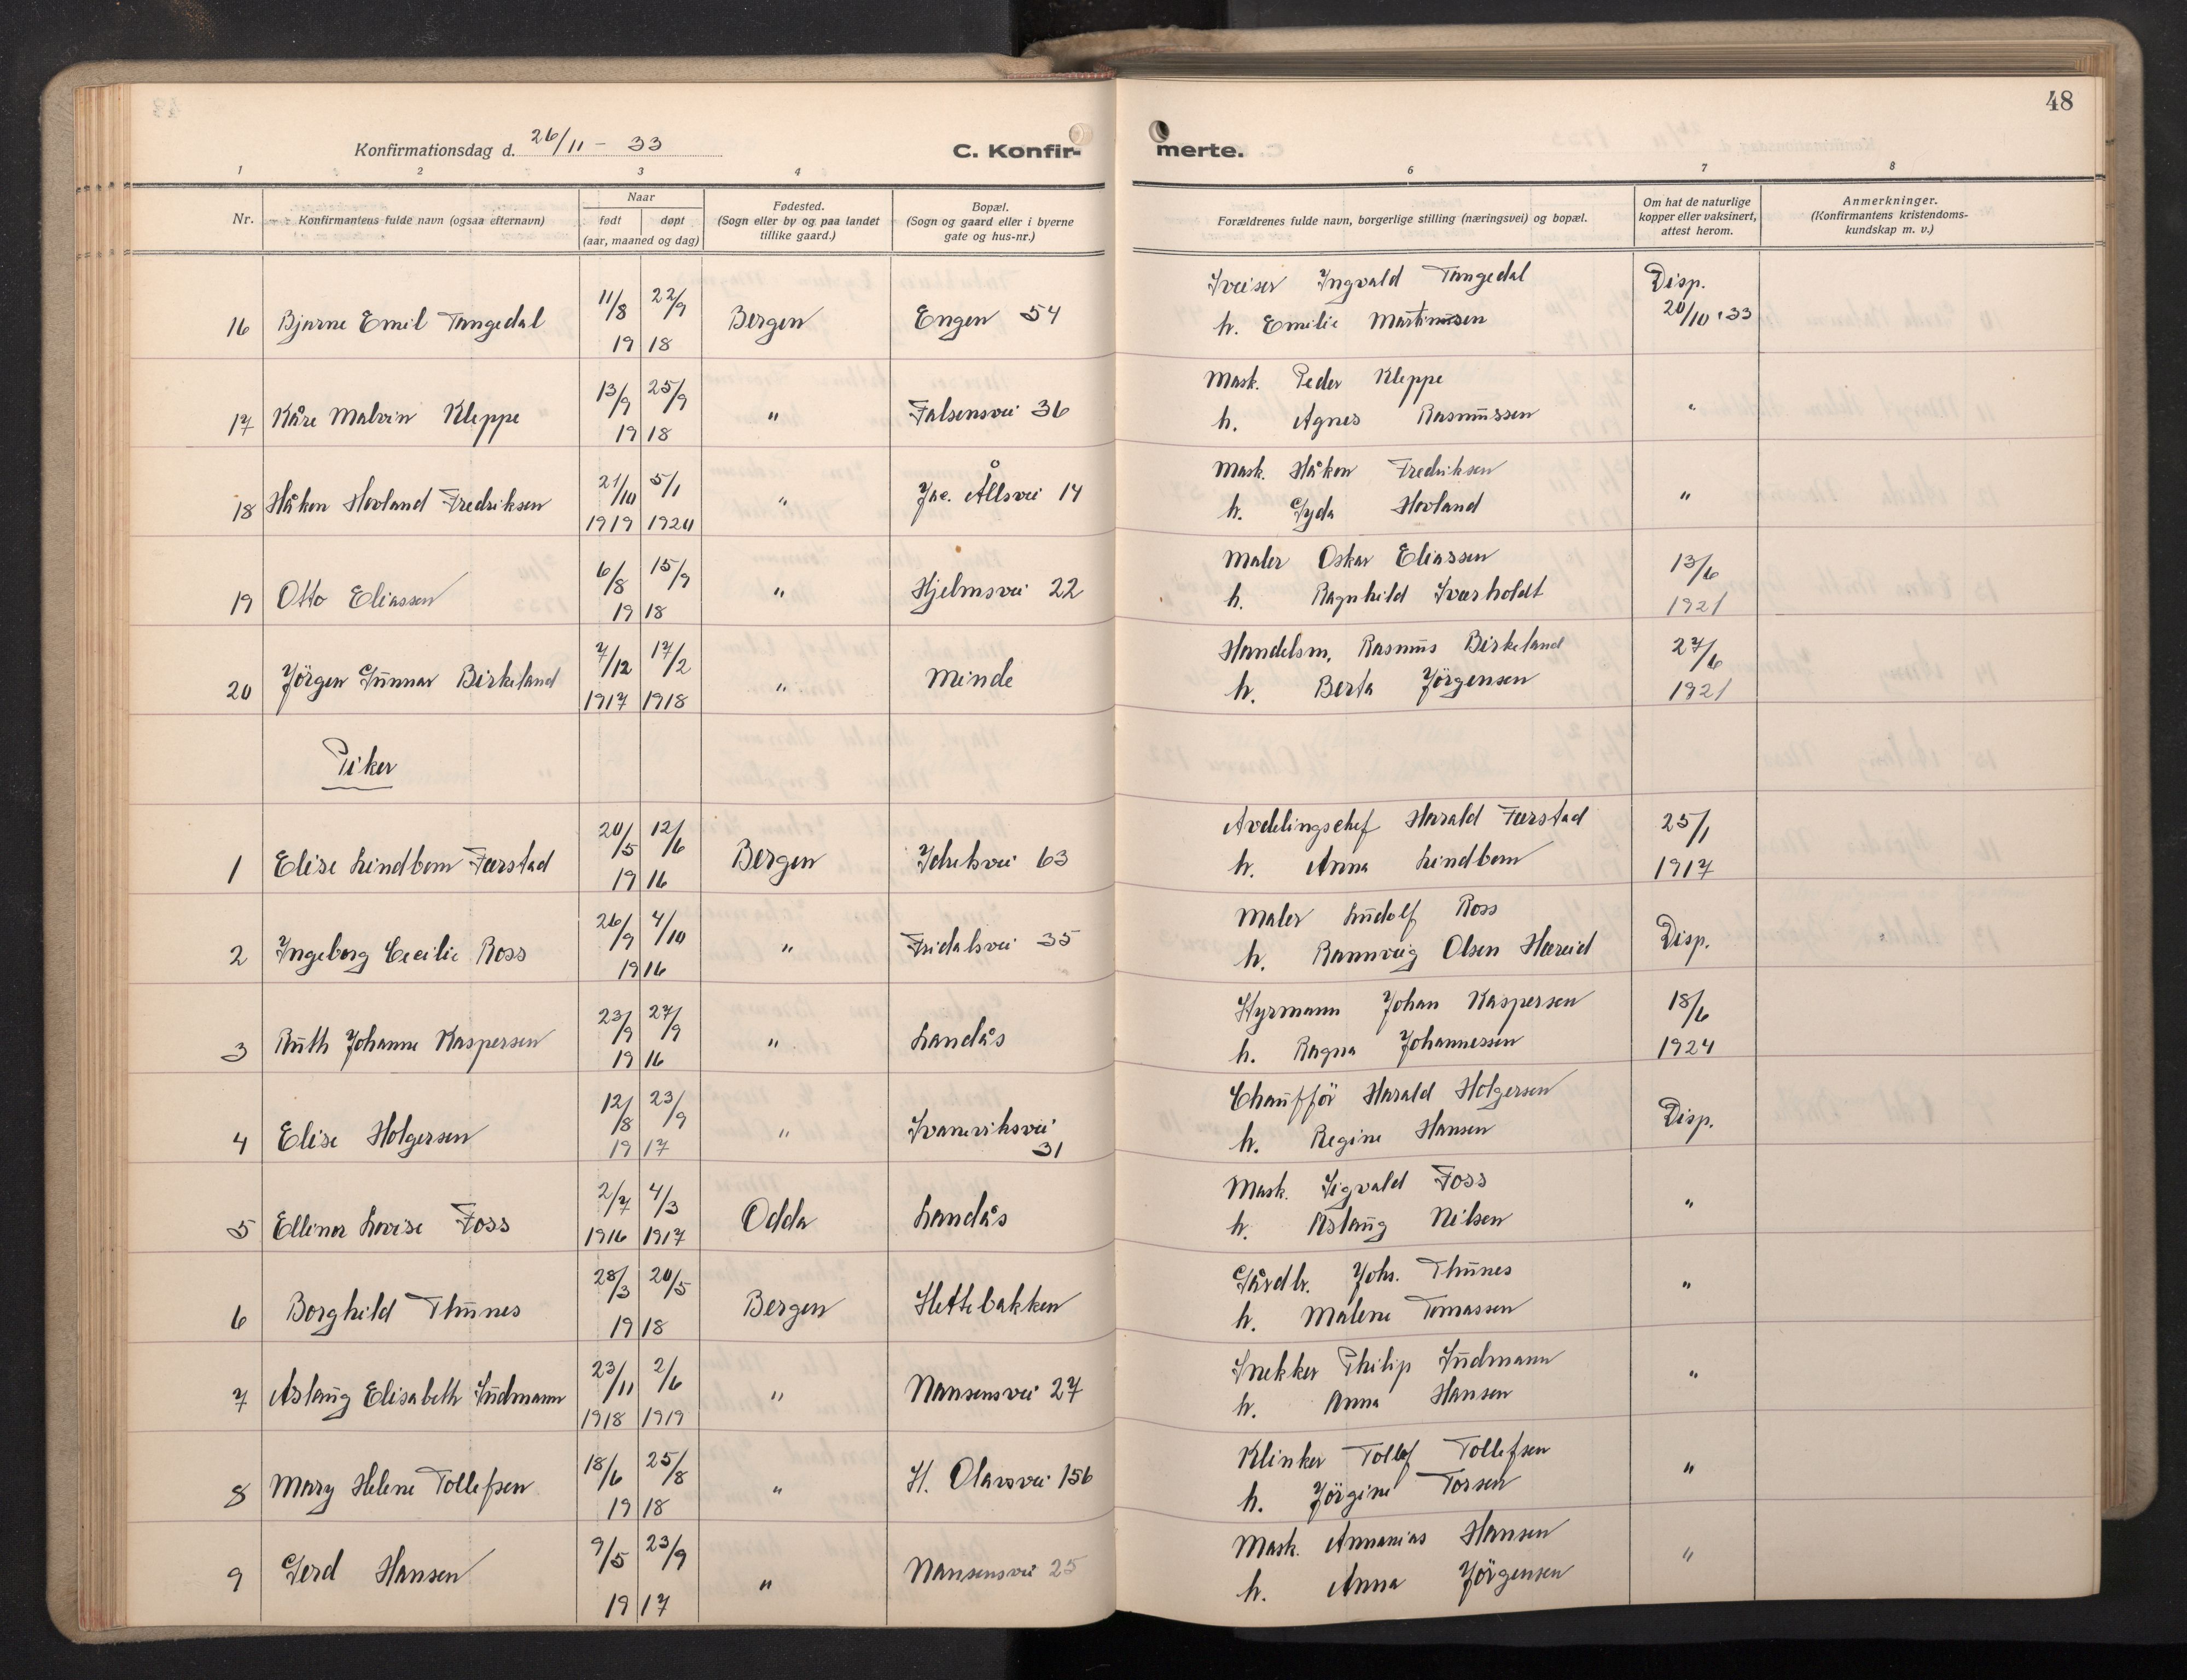 48
Konfirmationsdag d. 26/11 - 33
C. Konfir-
merte.
1 2 3 4 6 7 8
Nr.
Konfirmantens fulde navn (ogsaa efternavn)
Naar
født døpt
(aar, maaned og dag)
Fødested.
(Sogn eller by og paa landet
tillike gaard.)
Bopæl.
(Sogn og gaard eller i byerne
gate og hus-nr.)
Forældrenes fulde navn, borgerlige stilling (næringsvei) og bopæl.
Om hat de naturlige
kopper eller vaksinert,
attest herom.
Anmerkninger.
(Konfirmantens kristendoms-
kundskap m. v.)
16 Bjarne Emil Tangedal 11/8 22/9 1918 Bergen Engen 54
Sveiser Ingvald Tangedal Disp.
h. Emilie Martinusen 20/10 · 33
17 Kåre Malvin Kleppe 13/9 25/9 1918 " Falsensvei 36
Mask. Peder Kleppe
h. Agnes Rasmussen "
18 Håkon Hovland Fredriksen 21/10 5/1 1919 1920 " Jac. Ållsvei 14
Mask. Håkon Fredriksen
h. Gyda Hovland "
19 Otto Eliassen 6/8 15/9 1918 " Hjelmsvei 22
Maler Oskar Eliassen 13/6
h. Ragnhild Sværholdt 1921
20 Jörgen Gunnar Birkeland 7/12 17/2 1917 1918 " Minde
Handelsm. Rasmus Birkeland 27/6
h. Berta Jörgensen 1921
Piker
1 Elise Lindbom Færstad 20/5 12/6 1916 Bergen Ibsensvei 63
Avdelingschef Harald Færstad 25/1
h. Anna Lindbom 1917
2 Ingeborg Cecilie Ross 26/9 4/10 1916 " Fridalsvei 35
Maler Ludolf Ross
h. Rannveig Olsen Hæreid Disp.
3 Ruth Johanne Kaspersen 23/9 27/9 1916 " Landås
Styrmann Johan Kaspersen 18/6
h. Ragna Johannessen 1924
4 Elise Holgersen 12/8 23/9 1917 " Svaneviksvei 31
Chaufför Harald Holgersen
h. Regine Hansen Disp.
5 Ellinor Lovise Foss 2/7 4/3 1916 1917 Odda Landås
Mask. Sigvald Foss
h. Aslaug Nilsen "
6 Borghild Thunes 28/3 20/5 1918 Bergen Slettebakken
Gårdbr. Johs. Thunes
h. Malene Tomassen "
7 Aslaug Elisabeth Sudmann 23/11 2/6 1918 1919 " Nansensvei 27
Snekker Philip Sudmann
h. Anna Hansen "
8 Mary Helene Tollefsen 18/6 25/8 1918 " St. Olavsvei 156
Klinker Tollef Tollefsen
h. Jörgine Torsen "
9 Gerd Hansen 9/5 23/9 1917 " Nansensvei 25
Mask. Annanias Hansen
h. Anna Jörgensen "